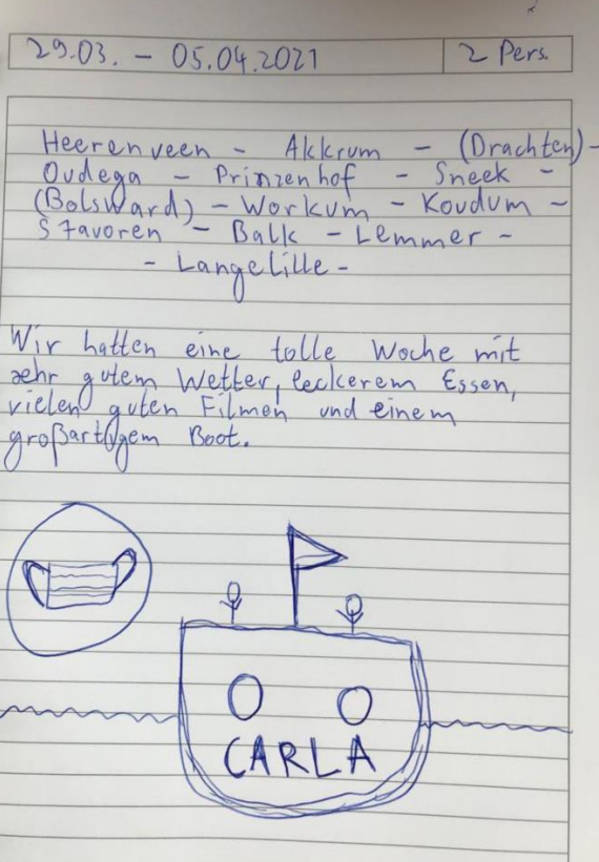 29.03. - 05.04.2021 2 Pers.
Heerenveen - Akkrum - (Drachten) -
Oudega - Prinzenhof - Sneek -
(Bolsward) - Workum - Koudum -
Stavoren - Balk - Lemmer -
- Langelille -
Wir hatten eine tolle Woche mit
sehr gutem Wetter, leckerem Essen,
vielen guten Filmen und einem
großartigem Boot.
CARLA